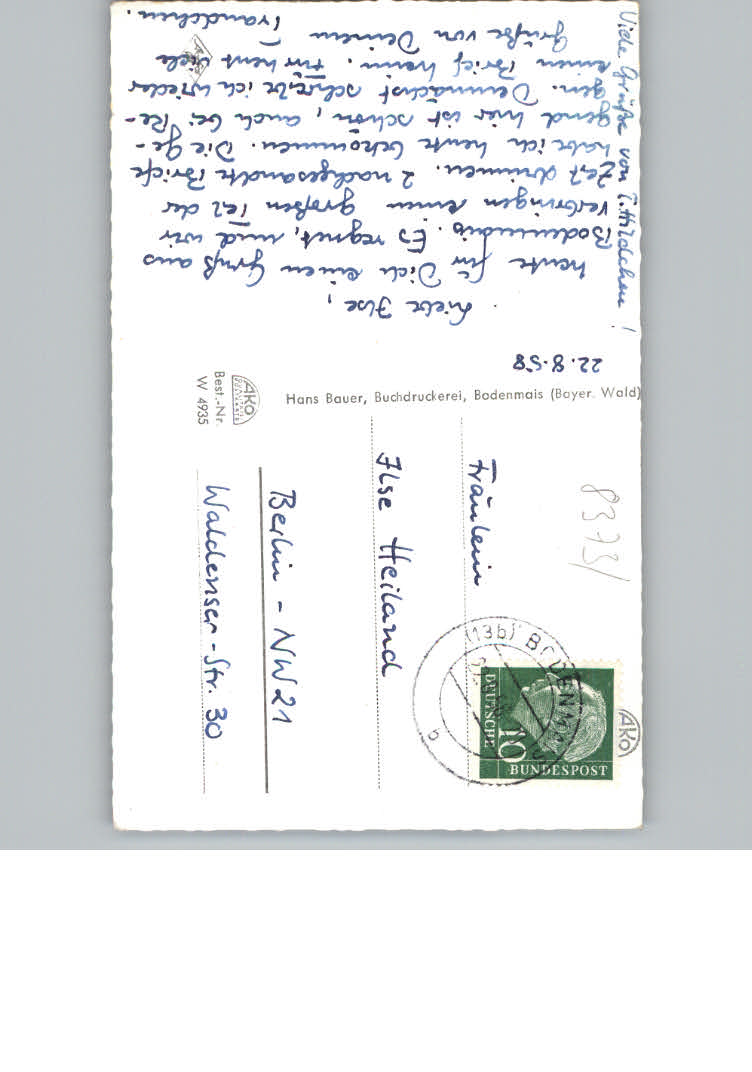 22.8.58
Liebe Ilse,
heute für Dich einen Gruß aus
Bodenmais. Es regnet, und wir
verbringen einen großen Teil der
Zeit drinnen. 2 nachgesandte Briefe
habe ich heute bekommen. Die Ge-
gend hier ist schön, auch bei Re-
gen. Demnächst schreibe ich wieder
einen Brief hierin. Für heut viele
Grüße von Deinem
Frandchen.
Viele Grüße von T. Hildchen!
Hans Bauer, Buchdruckerei, Bodenmais (Bayer. Wald)
AKO
Best.-Nr.
W 4935
8373/
Fräulein
Ilse Heiland
Berlin - NW 21
Waldenser-Str. 30
(13b) BODENMAIS
b
DEUTSCHE
10
BUNDESPOST
AKO